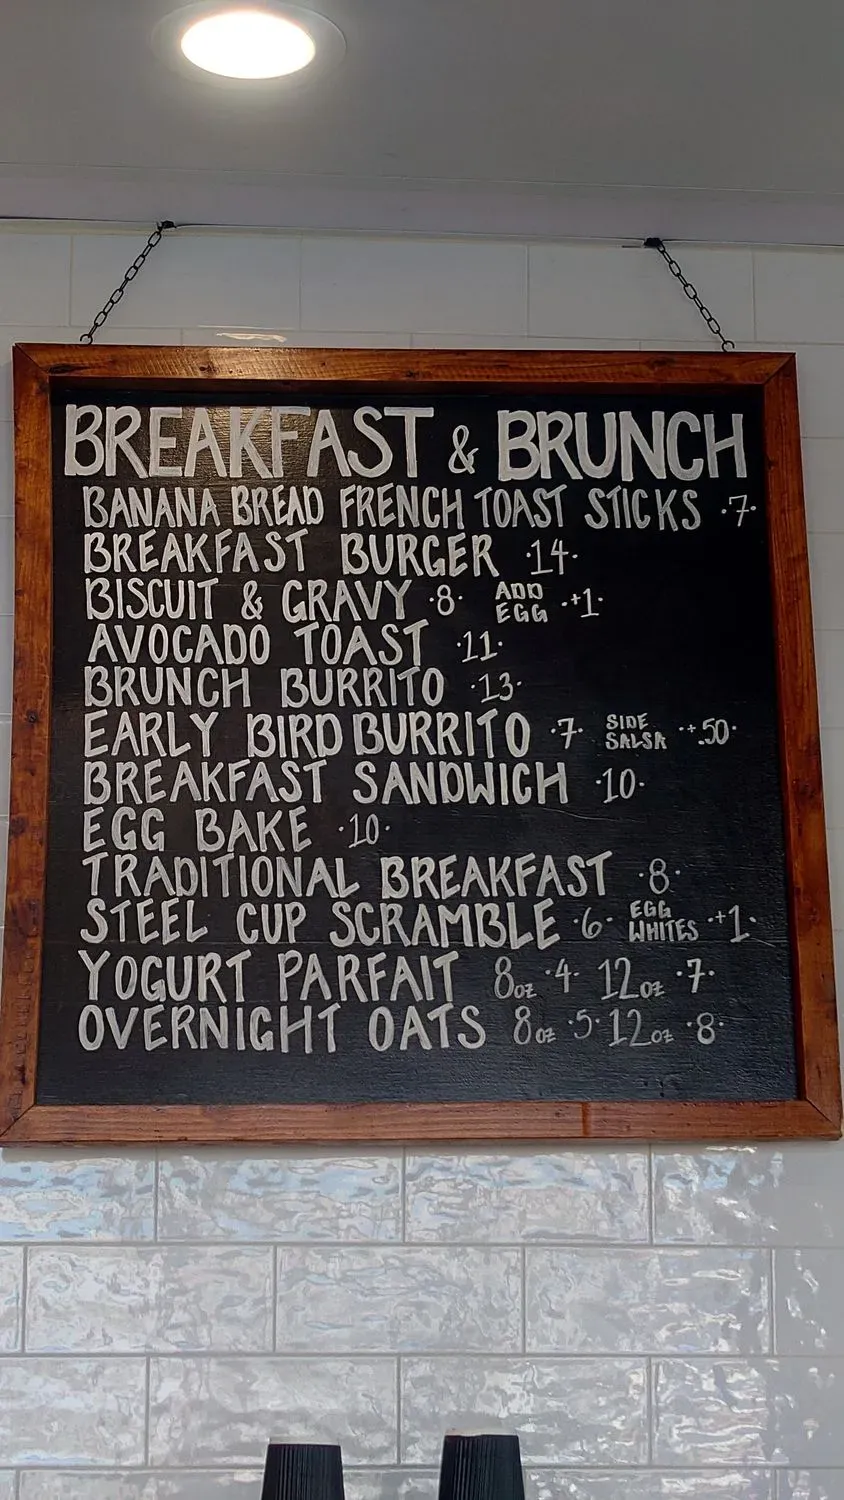 BREAKFAST & BRUNCH
BANANA BREAD FRENCH TOAST STICKS ·7·
BREAKFAST BURGER ·14·
BISCUIT & GRAVY ·8· ADD EGG ·+1·
AVOCADO TOAST ·11·
BRUNCH BURRITO ·13·
EARLY BIRD BURRITO ·7· SIDE SALSA ·+.50·
BREAKFAST SANDWICH ·10·
EGG BAKE ·10·
TRADITIONAL BREAKFAST ·8·
STEEL CUP SCRAMBLE ·6· EGG WHITES ·+1·
YOGURT PARFAIT 8oz ·4· 12oz ·7·
OVERNIGHT OATS 8oz ·5· 12oz ·8·